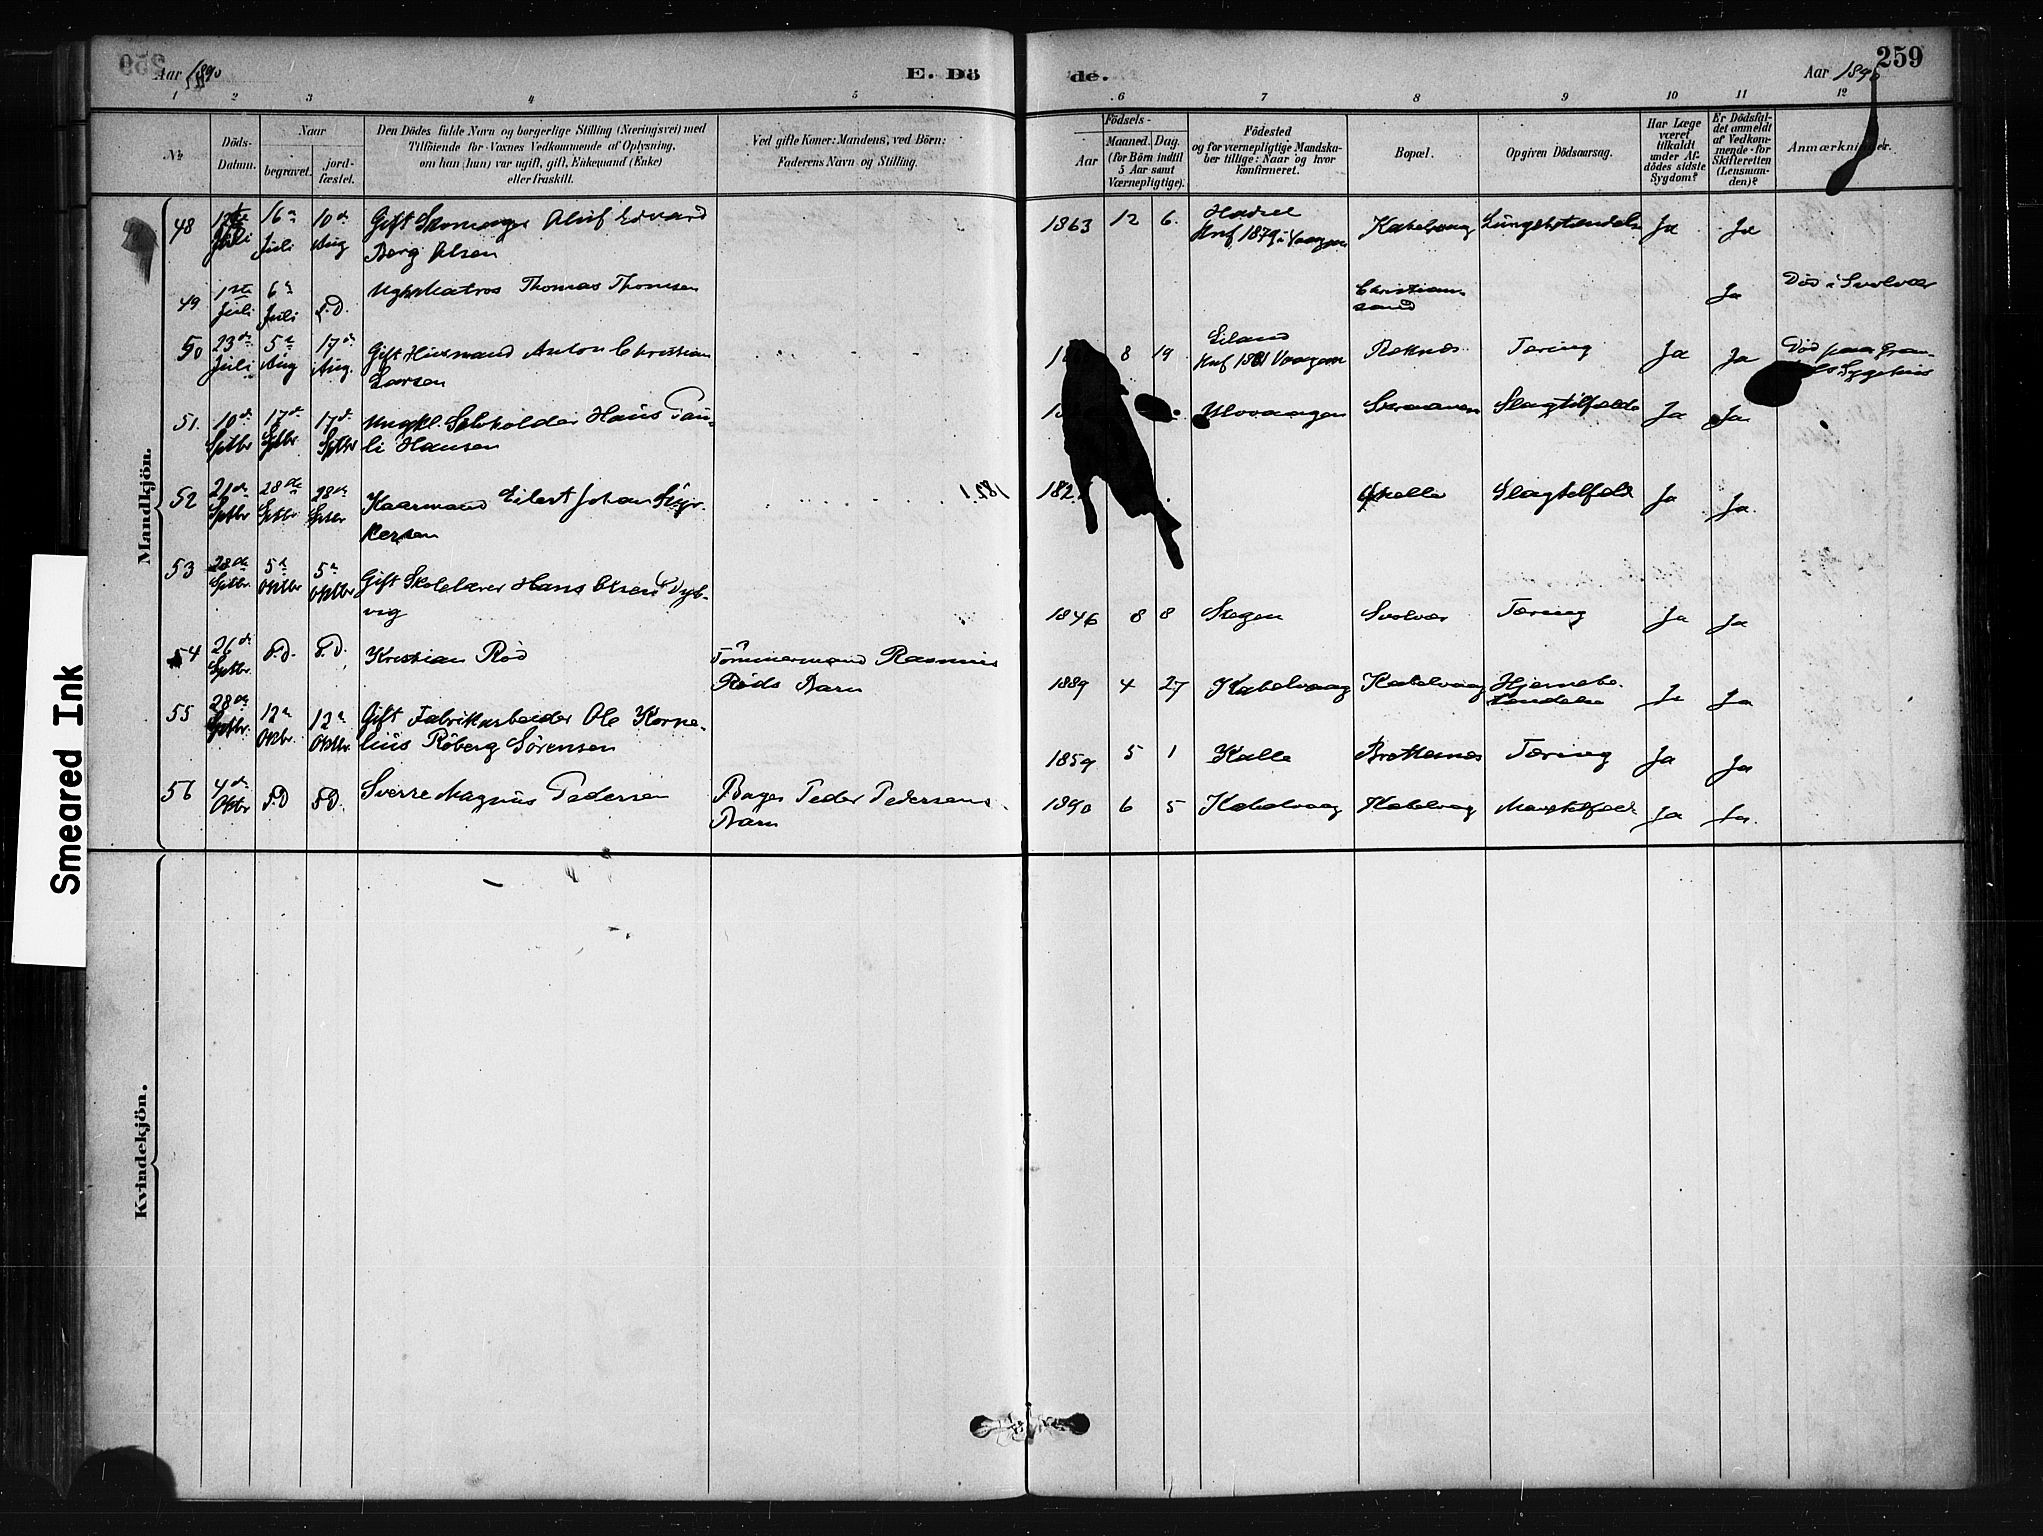 259
Aar 1890
E. Dö
de.
Aar 1890
259
1 2 3 4 5 6 7 8 9 10 11 12
№
Döds-
Datum.
Naar
begravet.
jord-
fæstet.
Den Dödes fulde Navn og borgerlige Stilling (Næringsvei) med
Tilföiende for Voxnes Vedkommende af Oplysning,
om han (hun) var ugift, gift, Enkemand (Enke)
eller fraskilt.
Ved gifte Koner: Mandens, ved Börn:
Faderens Navn og Stilling.
Födsels-
Aar
Maaned.
Dag.
(for Börn indtil
5 Aar samt
Værnepligtige).
Födested
og for værnepligtige Mandska-
ber tillige: Naar og hvor
konfirmeret.
Bopæl.
Opgiven Dödsaarsag.
Har Læge
været
tilkaldt
under Af-
dödes sidste
Sygdom?
Er Dödsfal-
det anmeldt
af Vedkom-
mende for
Skifteretten
(Lensman-
den)?
Anmærkninger.
Mandkjön.
48 Juli 16 Juli 10 Aug Gift Oluf Edvard
Berg Olsen
1863 12 6. Hadsel
Knf 1879 i Vaagan Kabelvaag Lungebetændelse Ja Ja
49 1ste Juli 6 Juli S.D. Matros Thomas Thomsen
Christian-
sand
Ja Död i Svolvær
50 23de Juli 5 Aug 17de Aug. Gift Husmand Anton Christian
Larsen
8 19 Eiland
Knf 1881 Vaagan Tæring Ja Ja Död paa Gra-
Sygehus
51. 10de Septbr 17de Septbr 17de Septbr Ungkl. Hans Pau-
li Hansen
Ulvaagen Skraaven Slagtilfælde Ja Ja
52 21de Septbr 28de Septbr 28de Septbr Kaarmand Eilert Johan
kersen
182 Kalle Slagtilfæld Ja Ja.
53 28de Septbr 5 Oktbr 5 Oktbr Gift Skolelærer Hans Olsen Dyb-
vig
1846 8 8 Stegen Svolvær Tæring Ja Ja
54 26de Septbr S.D. S.D. Kristian Röd Tömmermand Rasmus
Röds Barn
1889 4 27 Kabelvaag Kabelvaag Hjernebe-
tændelse Ja Ja
55 28de Septbr 12 Oktbr. 12 Oktbr. Gift Fabrikarbeider Ole Korne-
lius Röberg Sörensen
1859 5 1 Kalle Brettesnæs Tæring Ja Ja
56 4de Oktbr S.D S.D. Sverre Magnus Pedersen Bager Peder Pedersens
Barn
1890 6 5 Kabelvaag Kabelvaag Ja Ja.
Kvindekjön.
Smeared Ink